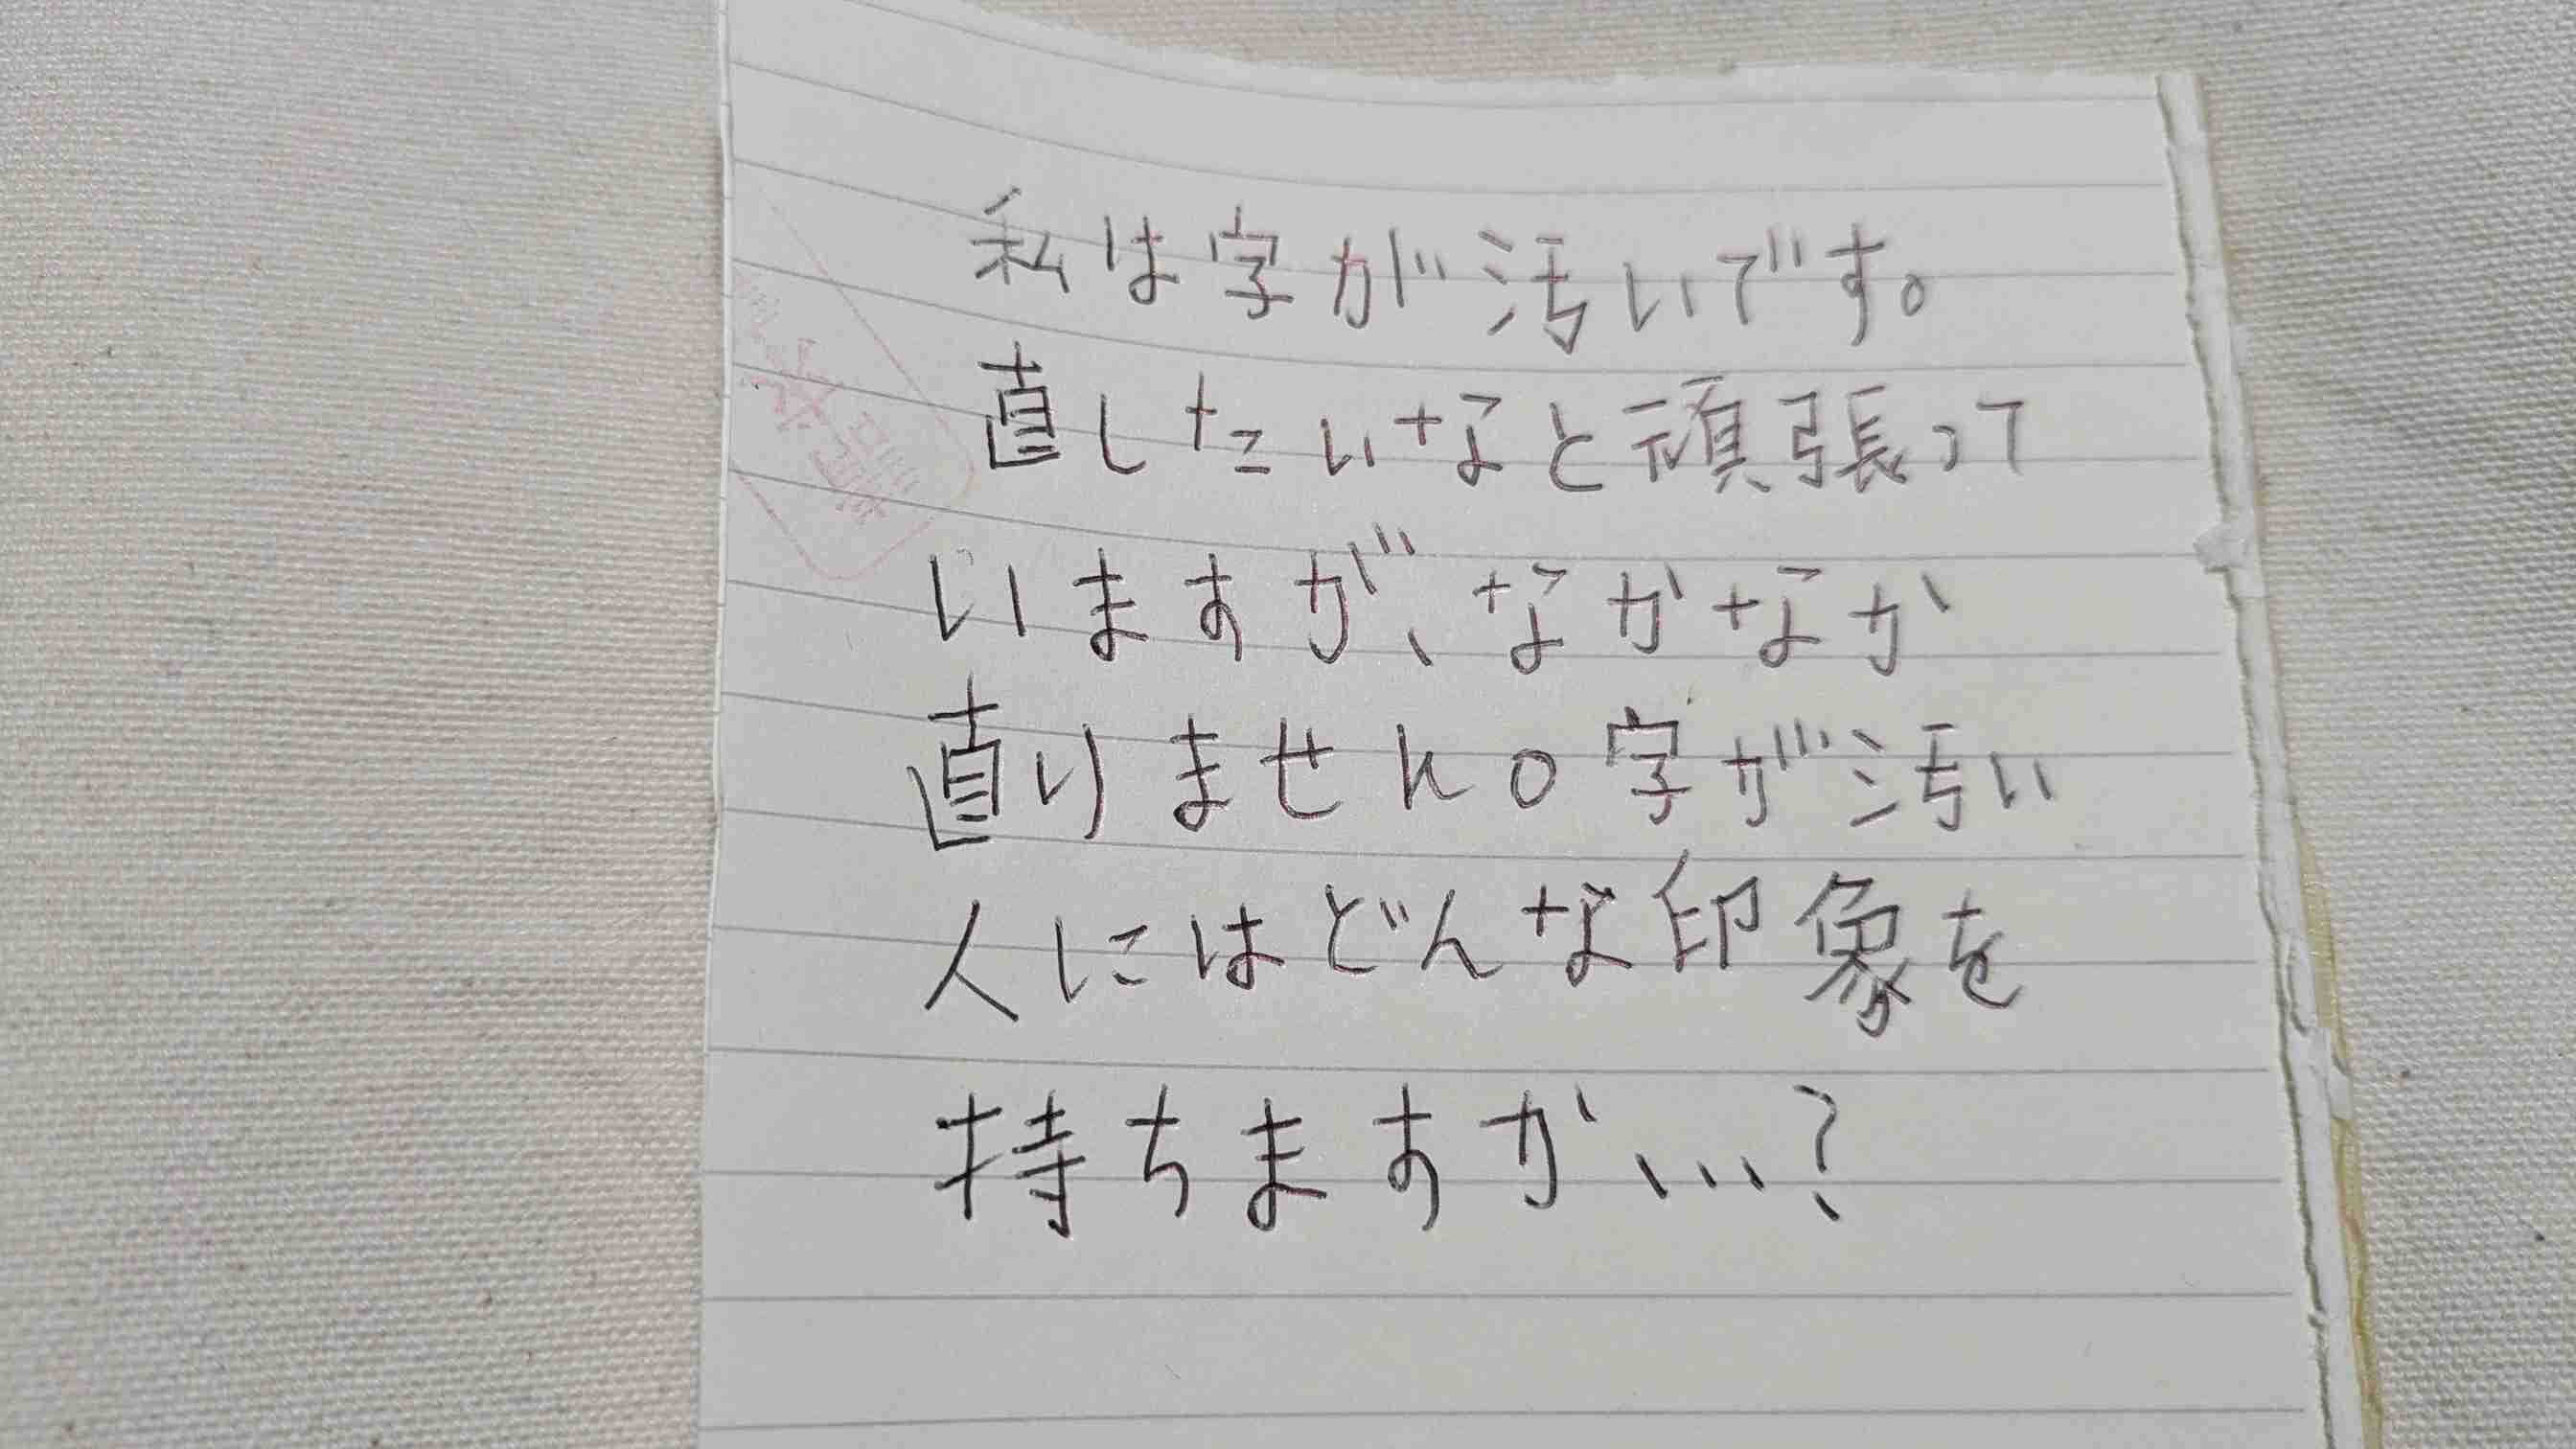 私は字が汚いです。
直したいなと頑張って
いますが、なかなか
直りません。字が汚い
人にはどんな印象を
持ちますか…?